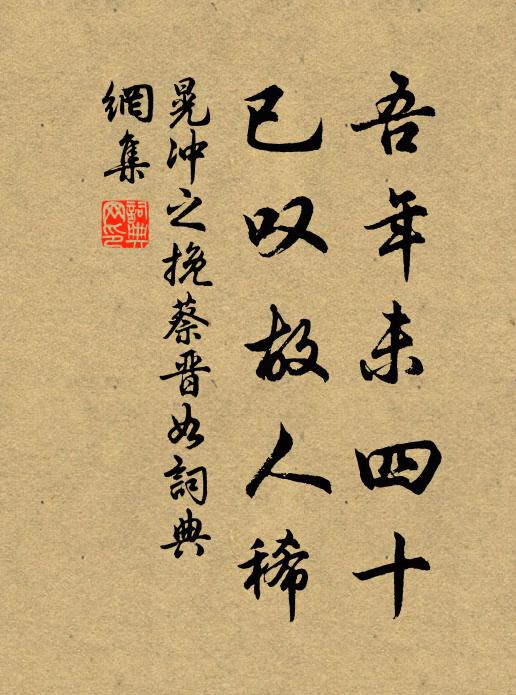 吾年未四十
已叹故人稀
晁沖之挽蔡晋如詞典
網集
詞典
网印